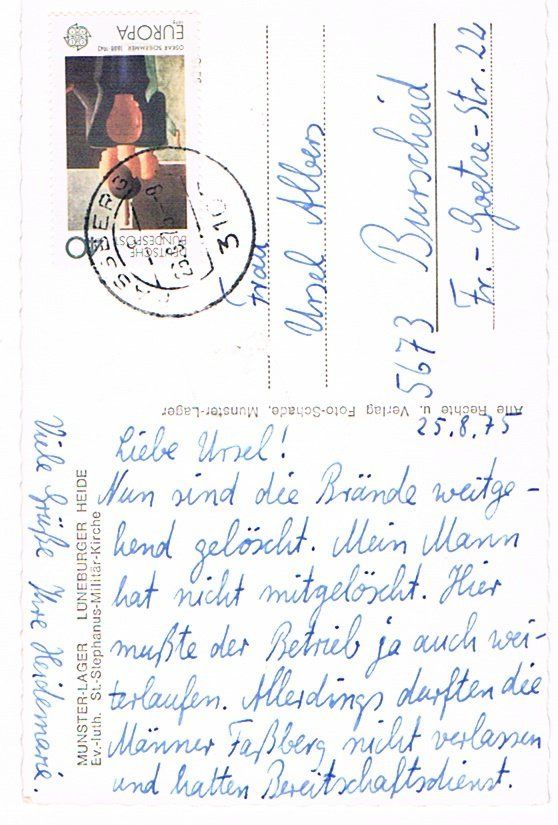 EUROPA
OSKAR SCHLEMMER 1888 1943
DEUTSCHE
BUNDESPOST
3105
Frau
Ursel Albers
5673 Burscheid
Fr.-Goetze-Str. 22
Alle Rechte u. Verlag Foto-Schade, Munster-Lager
25.8.75
Liebe Ursel!
Nun sind die Brände weitge-
hend gelöscht. Mein Mann
hat nicht mitgelöscht. Hier
mußte der Betrieb ja auch wei-
terlaufen. Allerdings durften die
Männer Faßberg nicht verlassen
und hatten Bereitschaftsdienst.
Viele Grüße Ihre Heidemarie.
MUNSTER-LAGER LÜNEBURGER HEIDE
Ev.-luth. St.-Stephanus-Militär-Kirche